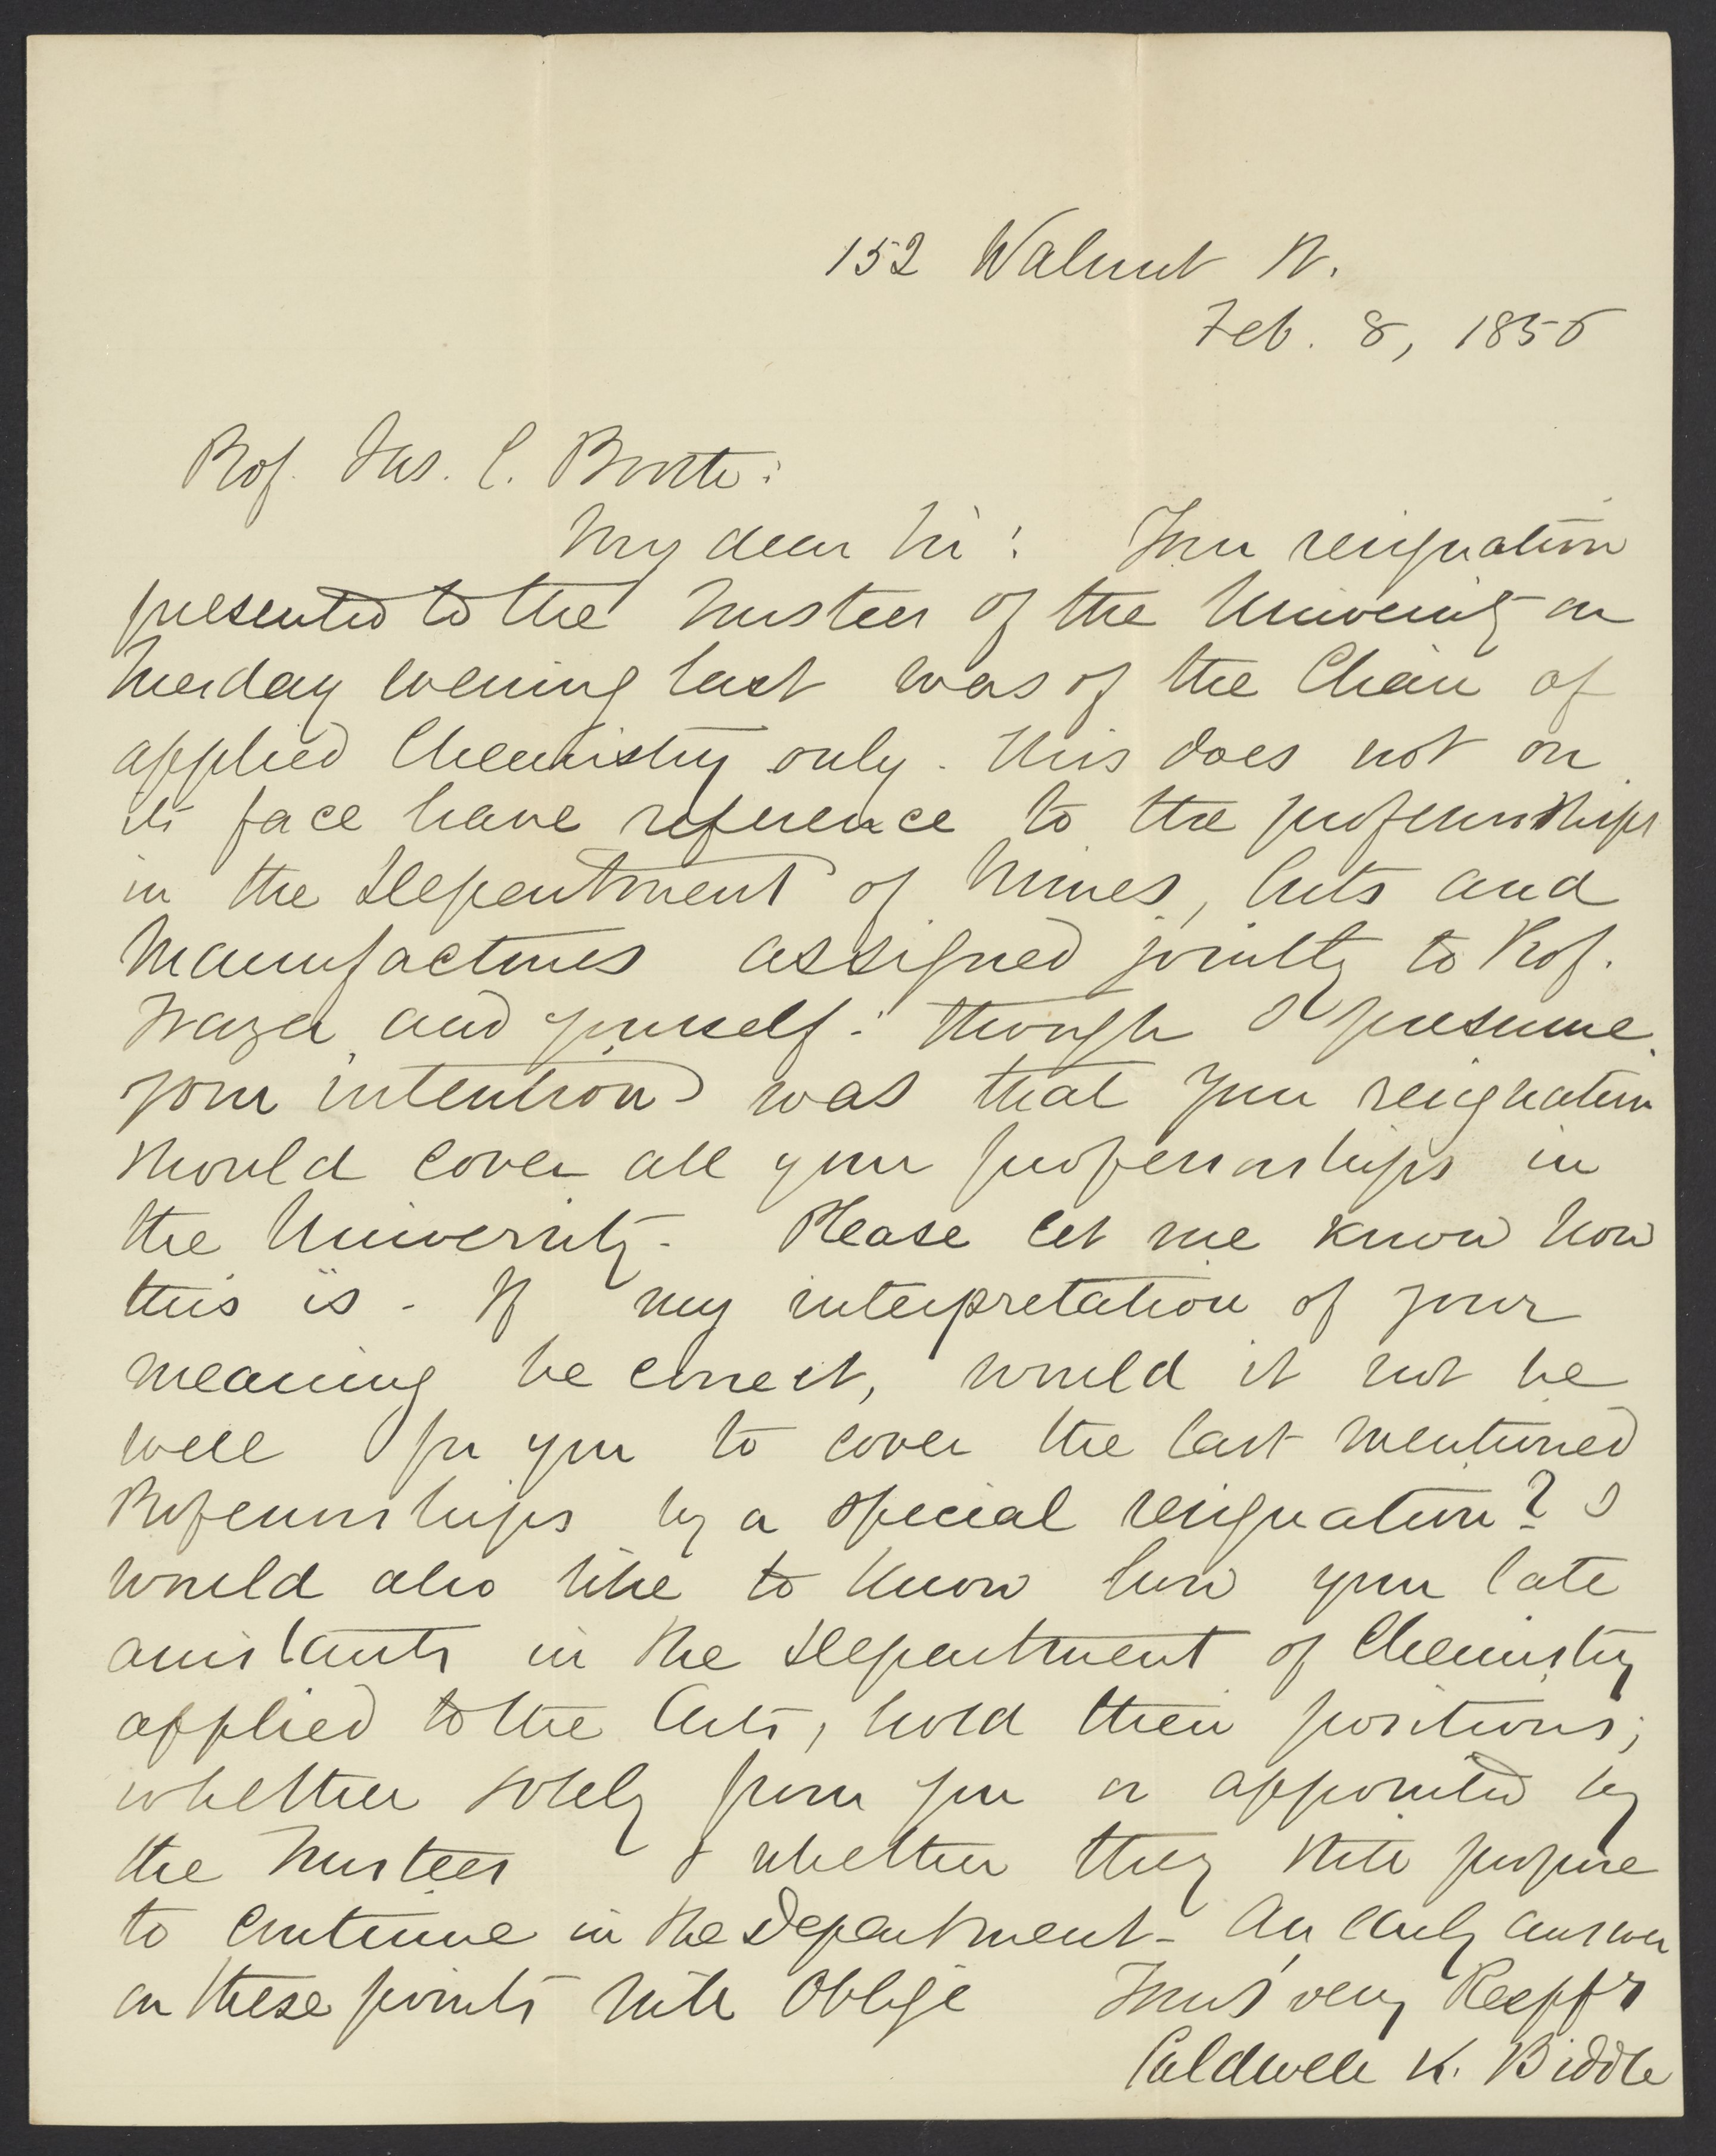 152 Walnut St.
Feb. 8, 1856
Prof. Jas. C. Booth:
My dear Sir: Your resignation
presented to the Trustees of the University on
Tuesday evening last was of the Chair of
applied Chemistry only. This does not on
its face have reference to the professorships
in the Department of Mines, Arts and
Manufactures assigned jointly to Prof.
Frazer and yourself: though I presume
your intention was that your resignation
should cover all your professorships in
the University. Please let me know how
this is. If my interpretation of your
meaning be correct, would it not be
well for you to cover the last mentioned
Professorships by a special resignation? I
would also like to know how your late
assistants in the Department of Chemistry
applied to the Arts, hold their positions;
whether solely from you or appointed by
the Trustees & whether they still propose
to continue in the Department. An early answer
on these points will oblige Yours very Respfy
Caldwell K. Biddle